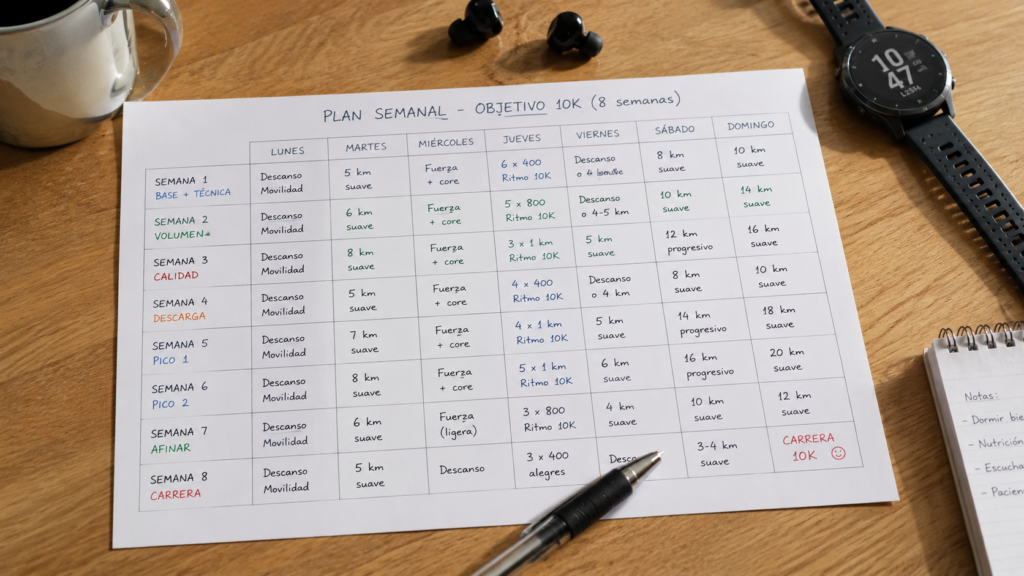 PLAN SEMANAL - OBJETIVO 10K (8 semanas)
LUNES MARTES MIÉRCOLES JUEVES VIERNES SÁBADO DOMINGO
SEMANA 1 Descanso 5 km Fuerza 6 x 400 Descanso 8 km 10 km
BASE + TÉCNICA Movilidad suave + core Ritmo 10K o 4 suave suave
SEMANA 2 Descanso 6 km Fuerza 5 x 800 Descanso 10 km 14 km
VOLUMEN Movilidad suave + core Ritmo 10K o 4-5 km suave suave
SEMANA 3 Descanso 8 km Fuerza 3 x 1 km 5 km 12 km 16 km
CALIDAD Movilidad suave + core Ritmo 10K suave progresivo suave
SEMANA 4 Descanso 5 km Fuerza 4 x 400 Descanso 8 km 10 km
DESCARGA Movilidad suave + core Ritmo 10K o 4 km suave suave
SEMANA 5 Descanso 7 km Fuerza 4 x 1 km 5 km 14 km 18 km
PICO 1 Movilidad suave + core Ritmo 10K suave progresivo suave
SEMANA 6 Descanso 8 km Fuerza 5 x 1 km 6 km 16 km 20 km
PICO 2 Movilidad suave + core Ritmo 10K suave progresivo suave
SEMANA 7 Descanso 6 km Fuerza 3 x 800 4 km 10 km 12 km
AFINAR Movilidad suave (ligera) Ritmo 10K suave suave suave
SEMANA 8 Descanso 5 km Descanso 3 x 400 Desc 3-4 km CARRERA
CARRERA Movilidad suave alegres suave 10K ☺
10
47
Notas:
- Dormir bie
- Nutrición
- Escucha
- Pacien